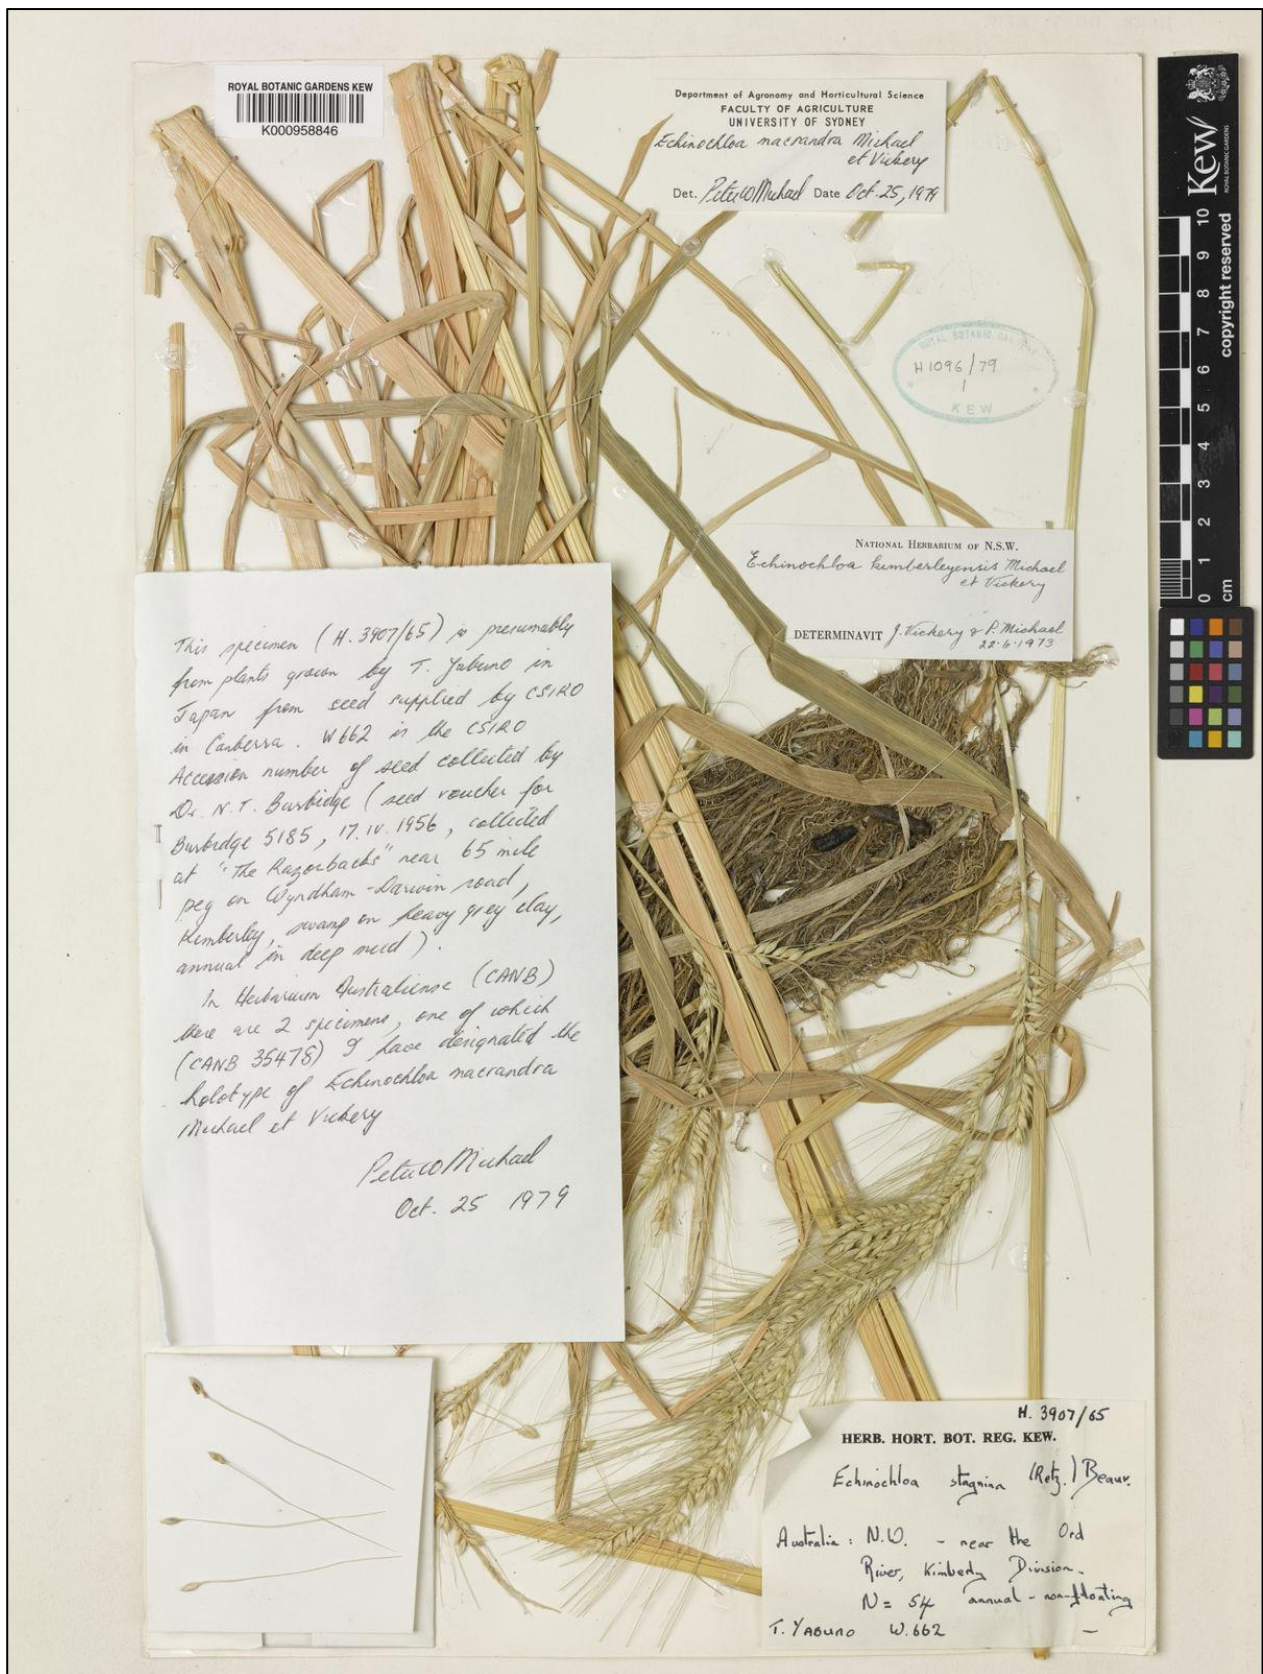 ROYAL BOTANIC GARDENS KEW
K000958846
Department of Agronomy and Horticultural Science
FACULTY OF AGRICULTURE
UNIVERSITY OF SYDNEY
Echinochloa macrandra Michael
et Vickery
Det. Peter W Michael Date Oct. 25, 1979
ROYAL BOTANIC GARDENS
H 1096/79
1
KEW
NATIONAL HERBARIUM OF N.S.W.
Echinochloa kimberleyensis Michael
et Vickery
DETERMINAVIT J. Vickery & P. Michael
22.6.1973
This specimen (H. 3907/65) is presumably
from plants grown by T. Yabuno in
Japan from seed supplied by CSIRO
in Canberra. W662 is the CSIRO
Accession number of seed collected by
Dr. N.T. Burbidge (seed voucher for
Burbidge 5185, 17.IV.1956, collected
at "The Razorbacks" near 65 mile
peg on Wyndham-Darwin road,
Kimberley, swamp on heavy grey clay,
annual in deep mud).
In Herbarium Australiense (CANB)
there are 2 specimens, one of which
(CANB 35478) I have designated the
holotype of Echinochloa macrandra
Michael et Vickery
Peter W Michael
Oct. 25 1979
H. 3907/65
HERB. HORT. BOT. REG. KEW.
Echinochloa stagnina (Retz.) Beauv.
Australia: N.W. - near the Ord
River, Kimberly Division.
N = 54 annual - non-floating
T. YABUNO W.662 —
Kew
ROYAL BOTANIC GARDENS
copyright reserved
10
9
8
7
6
5
4
3
2
1
0
cm